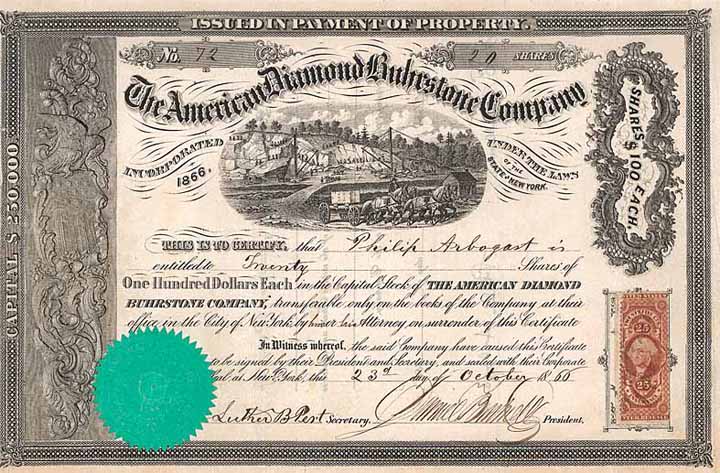 ISSUED IN PAYMENT OF PROPERTY.
No. 72
20 SHARES
The American Diamond Buhrstone Company
INCORPORATED 1866.
UNDER THE LAWS OF THE STATE OF NEW YORK.
SHARES $100 EACH.
CAPITAL $250,000
THIS IS TO CERTIFY, that Philip Arbogast is
entitled to Twenty Shares of
One Hundred Dollars Each in the Capital Stock of THE AMERICAN DIAMOND
BUHRSTONE COMPANY, transferable only on the books of the Company at their
office in the City of New York, by him or his Attorney, on surrender of this Certificate
In Witness whereof, the said Company have caused this Certificate
to be signed by their President and Secretary, and sealed with their Corporate
Seal at New York, this 23d day of October 1866
Luther B Secretary. President.
25
25